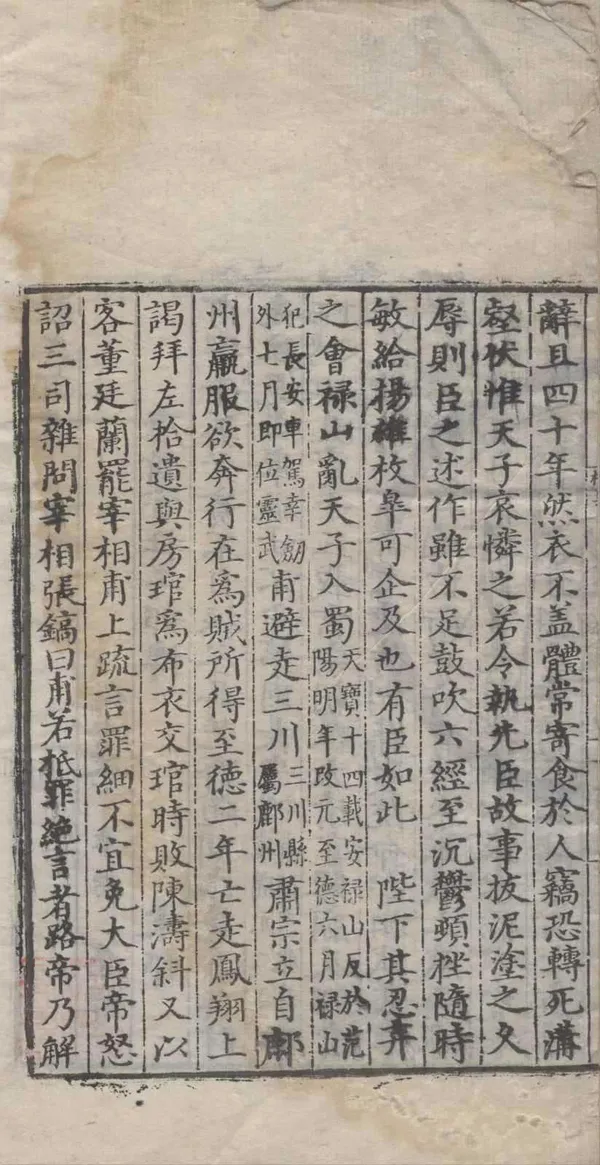 辭且四十年然衣不盖體常寄食於人竊恐轉死溝
壑伏惟天子哀憐之若令執先臣故事拔泥塗之久
辱則臣之述作雖不足鼓吹六經至沉鬱頓挫隨時
敏給揚雄枚臯可企及也有臣如此 陛下其忍弃
之會禄山亂天子入蜀天寶十四載安禄山反於范陽明年改元至德六月禄山
犯長安車駕幸劔外七月即位靈武甫避走三川三川縣屬鄜州肅宗立自鄜
州羸服欲奔行在爲賊所得至德二年亡走鳳翔上
謁拜左拾遺與房琯爲布衣交琯時敗陳濤斜又以
客董廷蘭罷宰相甫上疏言罪細不宜免大臣帝怒
詔三司雜問宰相張鎬曰甫若抵罪絶言者路帝乃解